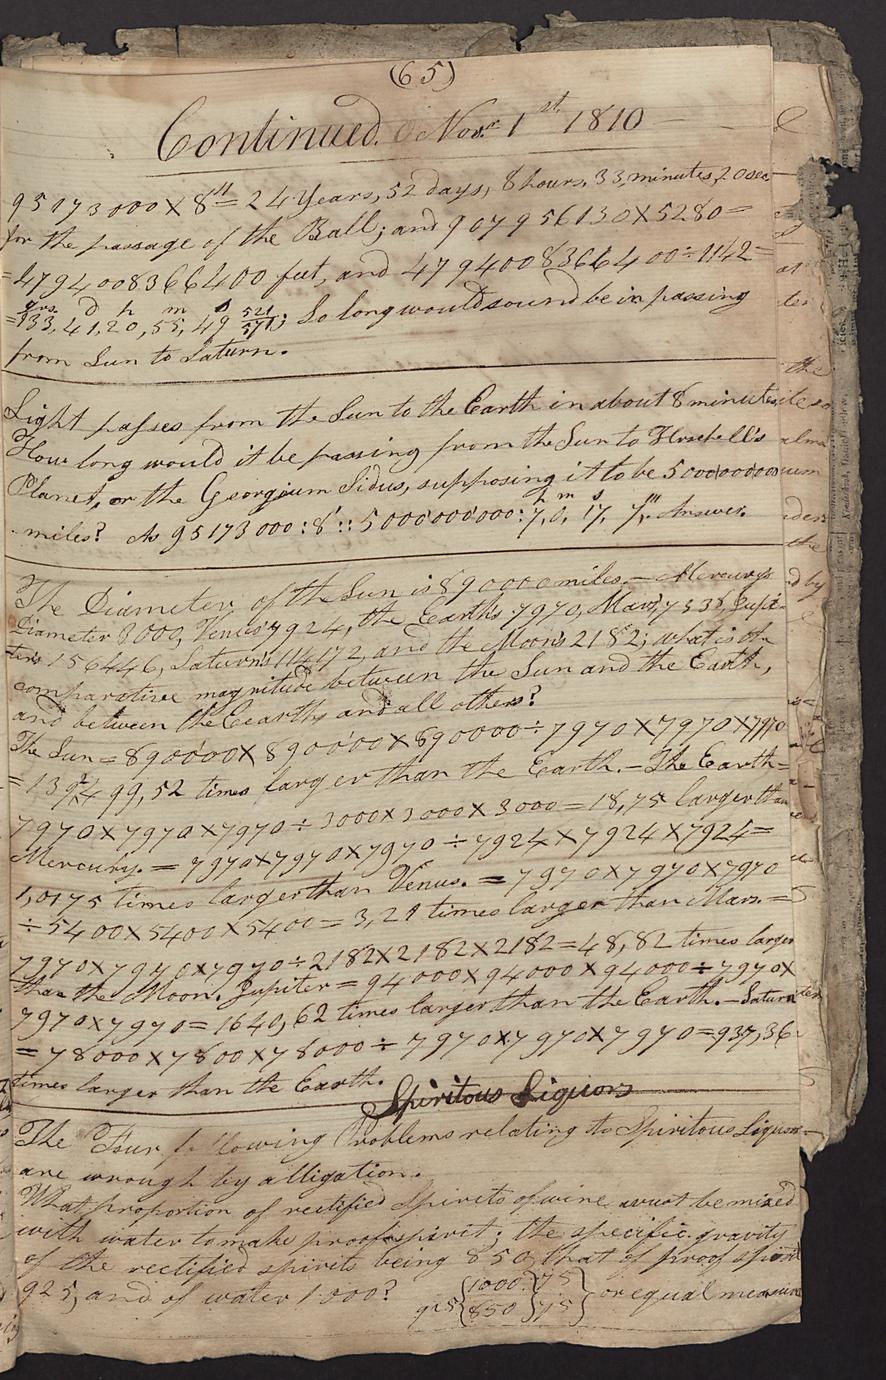 (65)
Continued. Novr. 1st 1810
95173000 X 8 = 24 Years, 52 days, 8 hours, 33, minutes, 20 sec
for the passage of the Ball; and 907956130X5280=
=4794008366400 feet, and 4794008366400÷1142=
yrs. d h m s
=133, 41, 20, 55, 49 521/571; So long would sound be in passing
from Sun to Saturn.
Light passes from the Sun to the Earth in about 8 minutes
How long would it be passing from the Sun to Herschell's
Planet, or the Georgium Sidus, supposing it to be 5000000000
miles? As 95173000 : 8' :: 5000000000 : 7h, 0m, 17s, 7''' Answer.
The Diameter of the Sun is 890000 miles. – Mercury's
Diameter 3000, Venus' 7924, the Earth's 7970, Mars, 7338, Jupi-
ter's 156446, Saturn's 114172, and the Moon's 2182; what is the
comparative magnitude between the Sun and the Earth,
and between the Eearth, and all others?
The Sun = 890000X890000X890000÷7970X7970X7970
= 1392499,52 times larger than the Earth. – The Earth=
7970X7970X7970÷3000X3000X3000=18,75 larger than
Mercury. = 7970X7970X7970÷7924X7924X7924=
1,0175 times larger than Venus. = 7970X7970X7970
÷5400X5400X5400=3,21 times larger than Mars. =
7970X7970X7970÷2182X2182X2182=48,82 times larger
than the Moon. Jupiter=94000X94000X94000÷7970X
7970X7970=1640,62 times larger than the Earth. – Saturn
=78000X7800X78000÷7970X7970X7970=937,36
times larger than the Earth.
Spiritous Liquors
The Four following Problems relating to Spiritous Liquors
are wrough by alligation.
What proportion of rectified Spirits of wine must be mixed
with water to make proof spirit; the specific gravity
of the rectified spirits being 850, that of proof spirit
925, and of water 1000? 925 {1000 } 75 } or equal measure
{850 } 75 }